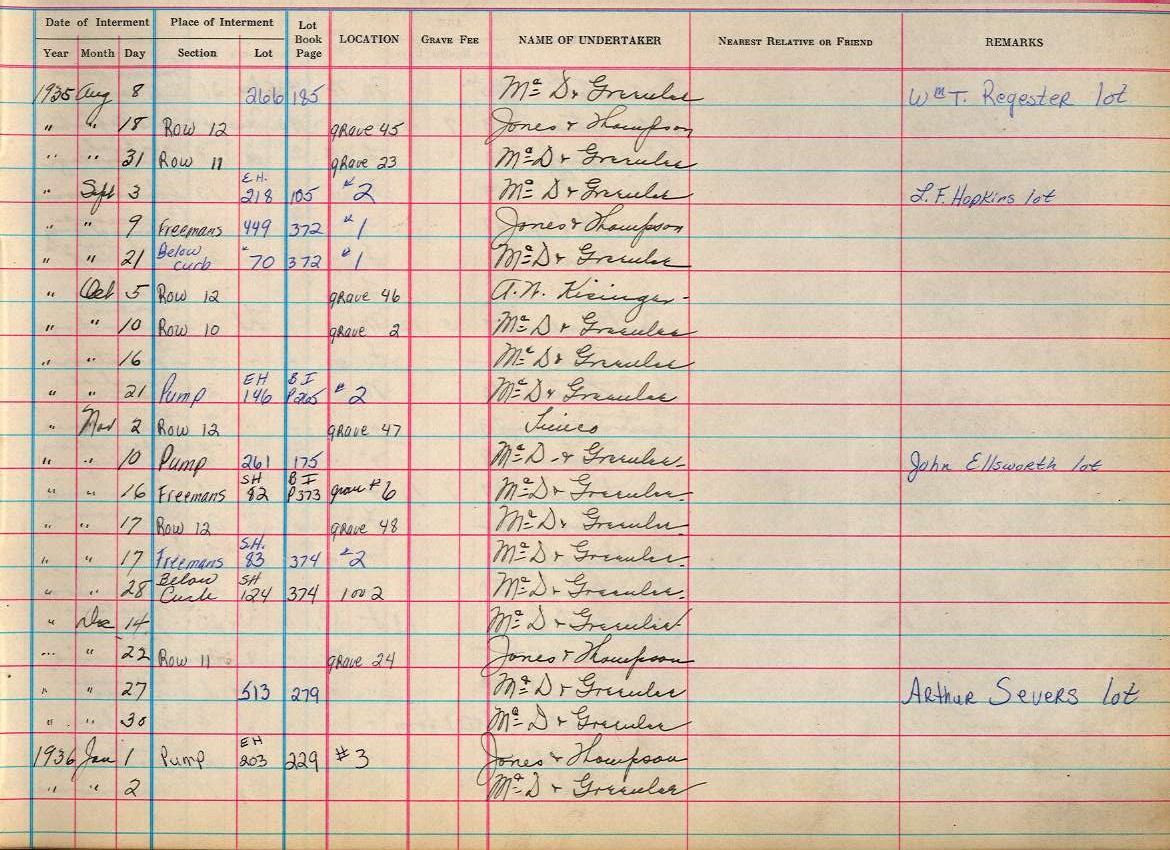 Date of Interment Place of Interment Lot Book Page LOCATION GRAVE FEE NAME OF UNDERTAKER NEAREST RELATIVE OR FRIEND REMARKS
Year Month Day Section Lot
1935 Aug 8 266 185 Mc D & Greenlee Wm T. Regester lot
" " 18 Row 12 grave 45 Jones & Thompson
" " 31 Row 11 grave 23 Mc D & Greenlee
" Sept 3 E.H. 218 105 #2 Mc D & Greenlee L.F. Hopkins lot
" " 9 Freemans 449 372 "1 Jones & Thompson
" " 21 Below curb " 70 372 "1 Mc D & Greenlee
" Oct 5 Row 12 grave 46 A.N. Kisinger
" " 10 Row 10 grave 2 Mc D & Greenlee
" " 16 Mc D & Greenlee
" " 21 Pump EH 146 B I P265 #2 Mc D & Greenlee
" Nov 2 Row 12 grave 47
" " 10 Pump 261 175 Mc D & Greenlee John Ellsworth lot
" " 16 Freemans SH 82 B I P373 grave #6 Mc D & Greenlee
" " 17 Row 12 grave 48 Mc D & Greenlee
" " 17 Freemans S.H. 83 374 #2 Mc D & Greenlee
" " 28 Below Curb SH 124 374 1 or 2 Mc D & Greenlee
" Dec 14 Mc D & Greenlee
" " 22 Row 11 grave 24 Jones & Thompson
" " 27 513 279 Mc D & Greenlee Arthur Severs lot
" " 30 Mc D & Greenlee
1936 Jan 1 Pump EH 203 229 #3 Jones & Thompson
" " 2 Mc D & Greenlee